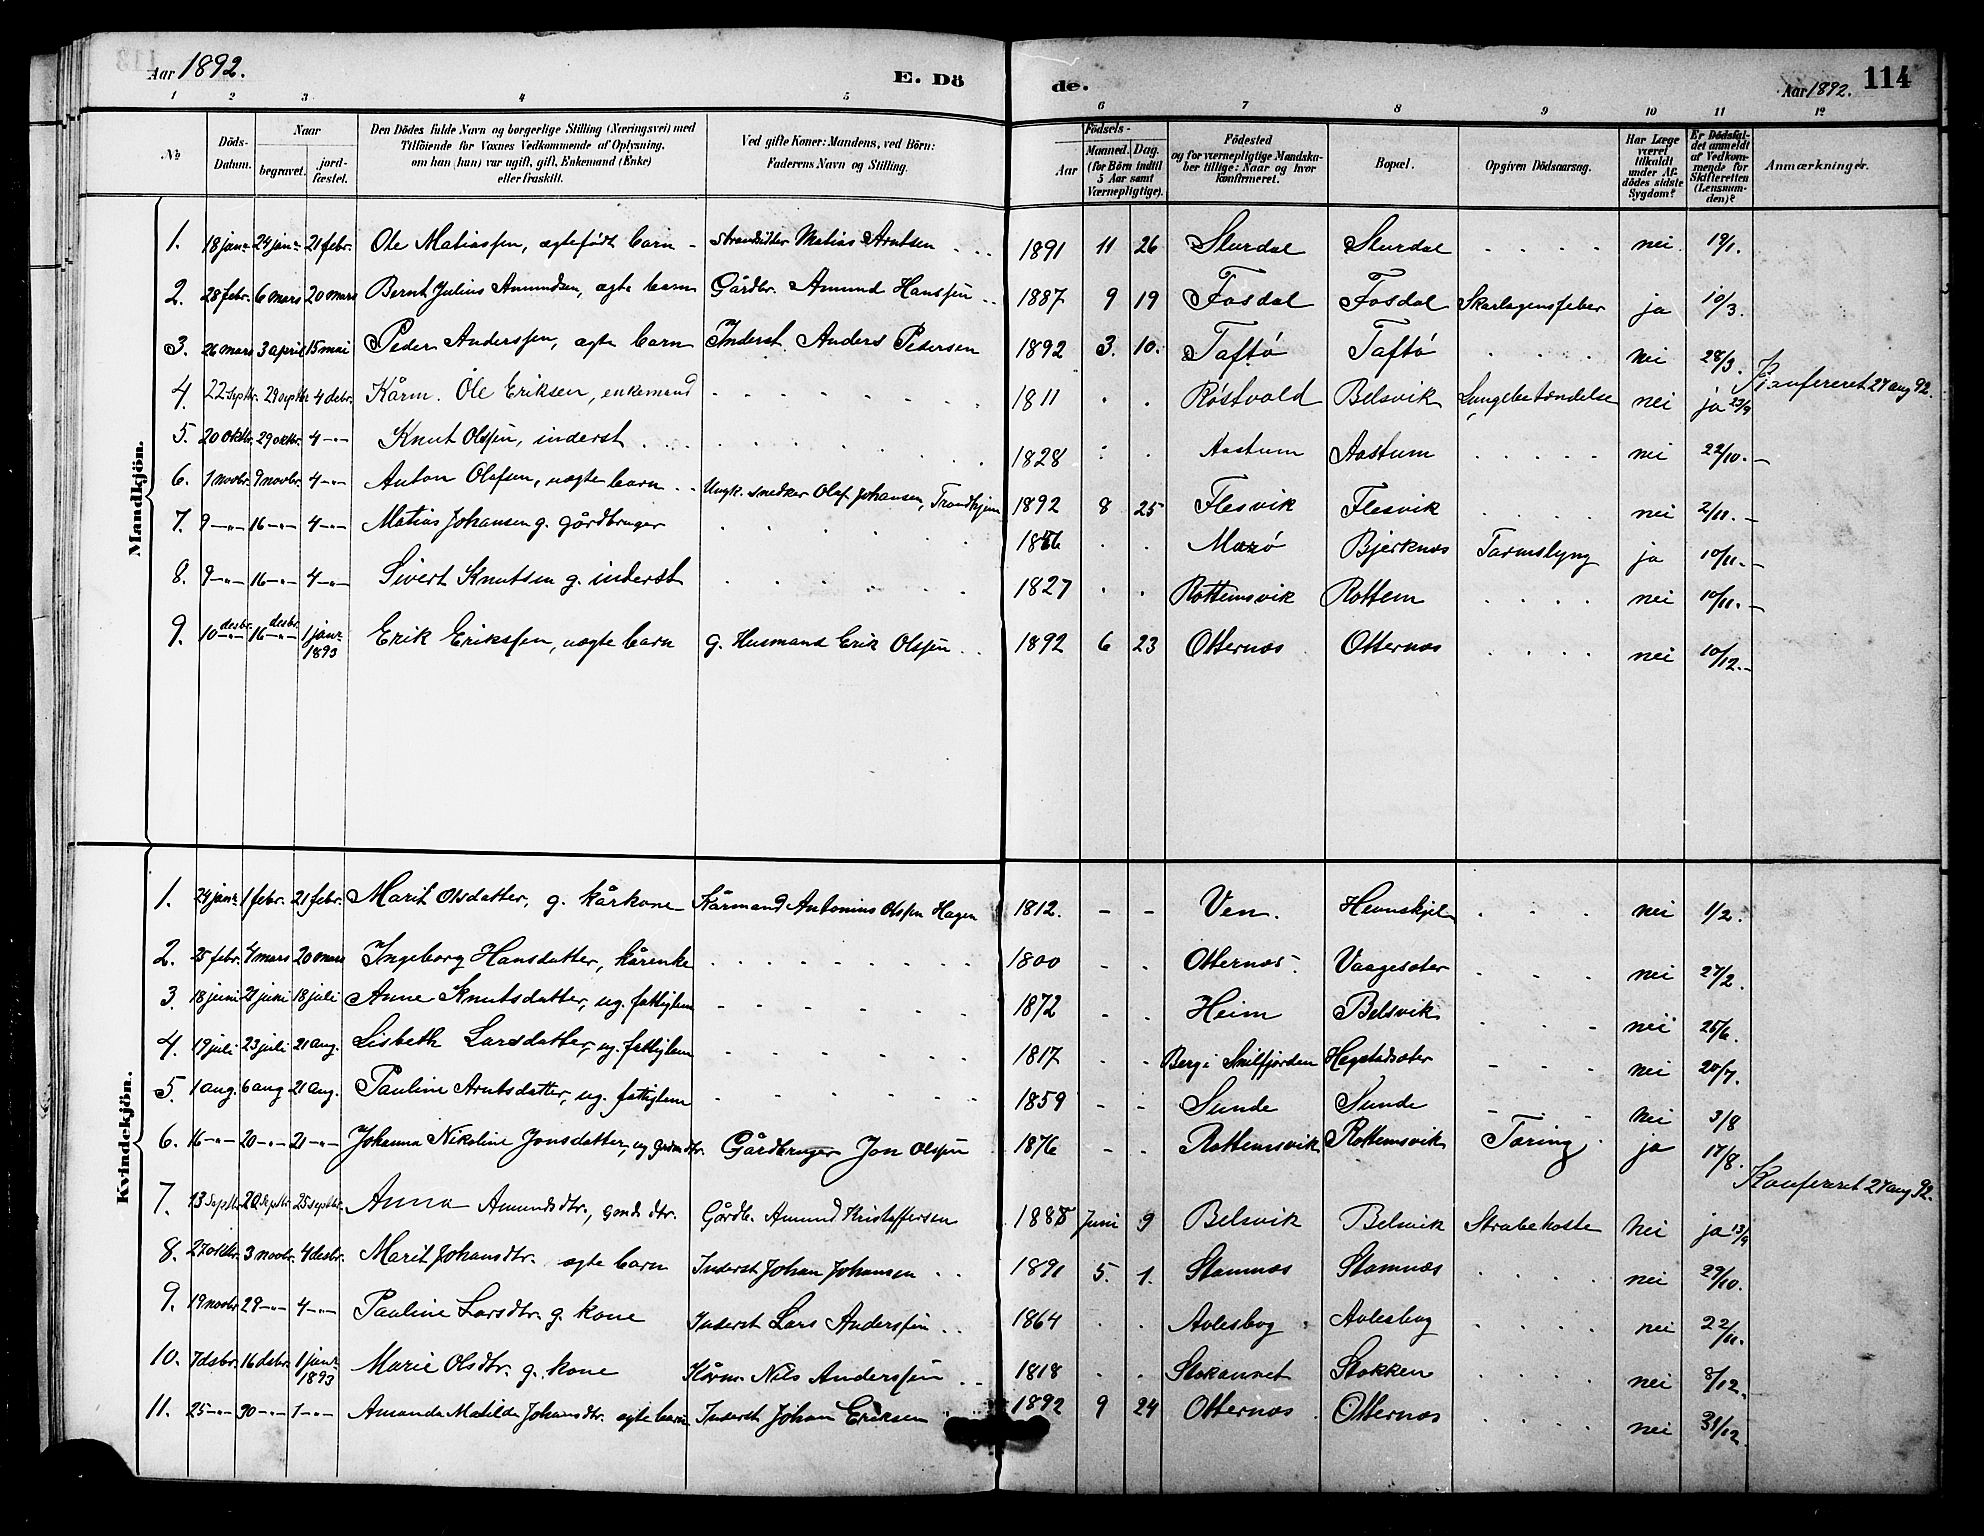 Aar 1892. E. Dö de. Aar 1892. 114
1 2 3 4 5 6 7 8 9 10 11 12
No
Döds-Datum.
Naar
begravet. jord-fæstet.
Den Dödes fulde Navn og borgerlige Stilling (Næringsvei) med
Tilföiende for Voxnes Vedkommende af Oplysning,
om han (hun) var ugift, gift, Enkemand (Enke)
eller fraskilt.
Ved gifte Koner: Mandens, ved Börn:
Faderens Navn og Stilling.
Födsels-
Aar Maaned. Dag.
(for Börn indtil
5 Aar samt
Værnepligtige).
Födested
og for værnepligtige Mandska-
ber tillige: Naar og hvor
konfirmeret.
Bopæl.
Opgiven Dödsaarsag.
Har Læge
været
tilkaldt
under Af-
dödes sidste
Sygdom?
Er Dödsfal-
det anmeldt
af Vedkom-
mende for
Skifteretten
(Lensman-
den)?
Anmærkninger.
Mandkjön.
1. 18 janr. 24 janr. 21 febr. Ole Matiassen, ægtefødt barn - Strandsidder Matias Arntsen 1891 11 26 Slurdal Slurdal nei 19/1.
2. 28 febr. 6 mars 20 mars Bernt Julius Amundsen, ægte barn Gårdbr. Amund Hanssen 1887 9 19 Fosdal Fosdal Skarlagensfeber ja 10/3.
3. 26 mars 3 april 15 mai Peder Anderssen, ægte barn Inderst Anders Pedersen 1892 3. 10. Taftø Taftø nei 28/3.
Konfereret 27 aug 92.
4. 22 septbr. 29 septbr. 4 debr. Kårm. Ole Eriksen, enkemand 1811 Røstvold Belsvik Lungebetændelse nei ja 23/9
5. 20 oktbr. 29 oktbr. 4 -"- Knut Olssen, inderst 1828 Aastum Aastum nei 22/10. -
6. 1 novbr. 9 novbr. 4 -"- Anton Olafsen, uægte barn Ungk. snedker Olaf Johansen, Trondhjem 1892 8 25 Flesvik Flesvik nei 2/11. -
7. 9 -"- 16 -"- 4 -"- Matias Johansen g. gårdbruger Bjerknæs Tarmslyng ja 10/11. -
8. 9 -"- 16 -"- 4 -"- Sivert Knutsen g. inderst 1827 Rottemsvik Rottem nei 10/11. -
9. 10 desbr. 16 desbr. 1 janr. 1893 Erik Erikssen, uægte barn g. Husmand Erik Olssen 1892 6 23 Otternæs Otternæs nei 10/12. -
Kvindekjön.
1. 24 janr. 1 febr. 21 febr. Marit Olsdatter, g. kårkone Kårmand Antonius Olssen Hagen 1812. - - Ven. Hevnskjel nei 1/2.
2. 25 febr. 4 mars 20 mars Ingeborg Hansdatter, kårenke 1800 Otternæs. Vaagesæter nei 27/2.
3. 18 juni 27 juni 18 juli Anne Knutsdatter, ug. fattiglem 1872 Heim Belsvik nei 25/6.
4. 19 juli 23 juli 21 aug. Lisbeth Larsdatter, ug. fattiglem 1817 Berg i Snilfjorden Hegstadsæter nei 20/7.
5. 1 aug. 6 aug 21 aug. Pauline Arntsdatter, ug. fattiglem 1859 - - Sunde Sunde nei 3/8
6. 16 -"- 20 -"- 21 -"- Johanna Nikoline Jonsdatter, ug grdm dtr. Gårdbruger Jon Olssen 1876 Rottemsvik Rottemsvik Tæring ja 17/8.
Konfereret 27 aug 92.
7. 13 septbr. 20 septbr. 25 septbr. Anna Amundsdtr., gmds dtr. Gårdb. Amund Kristoffersen 1888 Juni 9 Belsvik Belsvik Strubehoste Nei ja 13/9
8. 27 oktbr. 3 novbr. 4 desbr. Marit Johansdtr. ægte barn Inderst Johan Johansen 1891 5. 1. Stamnæs Stamnæs nei 29/10.
9. 19 novbr. 29 -"- 4 -"- Pauline Larsdtr. g. kone Inderst Lars Anderssen 1864 Avlesbog Avlesbog nei 22/11.
10. 7 dsbr. 16 dsbr. 1 janr. 1893 Marie Olsdtr. g. kone Kårm. Nils Anderssen 1818 Stokannet Stokken nei 8/12.
11. 25 -"- 30 -"- 1 -"- Amanda Matilde Johansdtr. ægte barn Inderst Johan Eriksen 1892 9 24 Otternæs Otternæs nei 31/12.